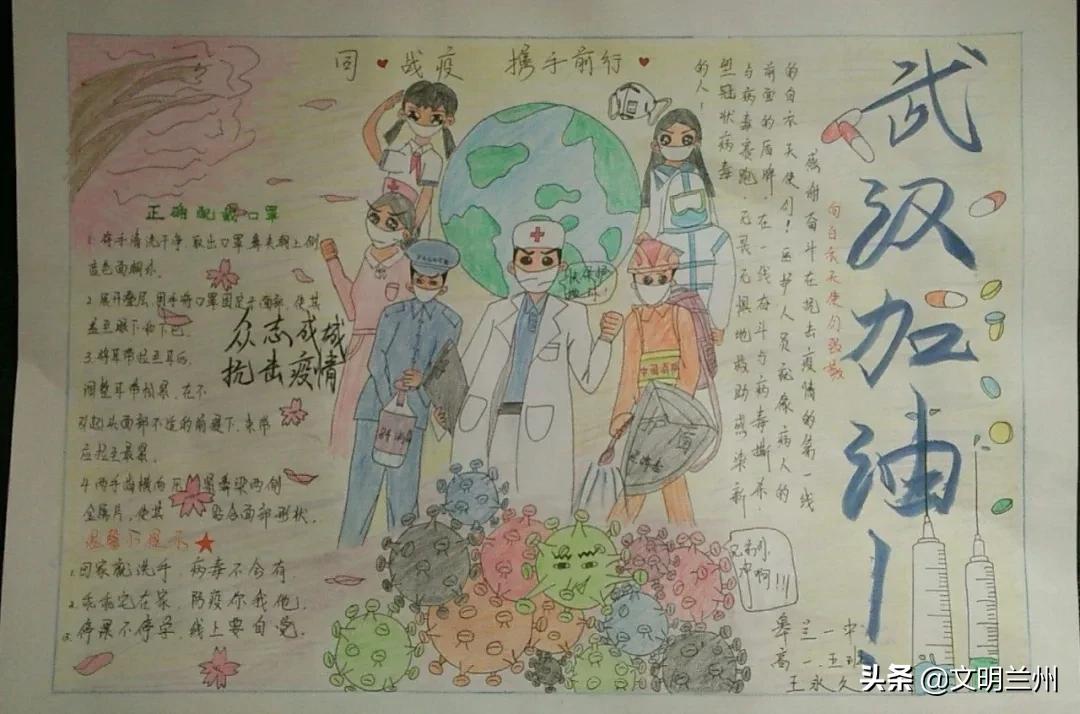 同❤战疫 携手前行❤
武汉加油！
向白衣天使们致敬
感谢奋斗在抗击疫情的第一线
的白衣天使们！医护人员就像病人的
前面的盾牌，在一线奋斗与病毒撕杀，
与病毒赛跑，无畏无惧地救助感染新
型冠状病毒
的人！
正确配戴口罩
1. 将手清洗干净，取出口罩，鼻夹朝上侧
蓝色面朝外。
2. 展开叠层，用手将口罩固定于面部，使其
盖至眼下和下巴。
3. 将耳带拉至耳后，
调整耳带松紧，在不
引起头面部不适的前题下，束带
应拉至最紧。
4. 两手指横向
金属片，使其 贴合面部形状。
众志成城
抗击疫情
温馨小提示★
1. 回家就洗手，病毒不会有
2. 乖乖宅在家，防疫你我他。
3. 停课不停学，线上要自觉。
快保护
中国消防
兄弟们
冲啊!!!
皋兰一中
高一.五班
王永久
头条 @文明兰州